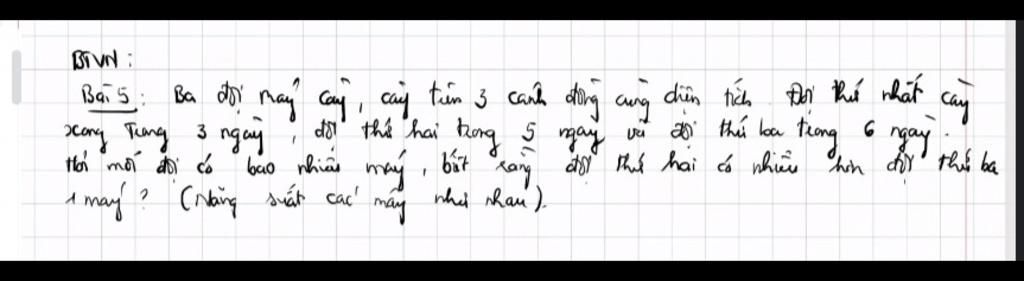 BTVN :
Bài 5 : Ba đội máy cày, cày trên 3 cánh đồng cùng diện tích. Đội thứ nhất cày
xong trong 3 ngày, đội thứ hai trong 5 ngày và đội thứ ba trong 6 ngày.
Hỏi mỗi đội có bao nhiêu máy, biết rằng đội thứ hai có nhiều hơn đội thứ ba
1 máy ? (Năng suất các máy như nhau).